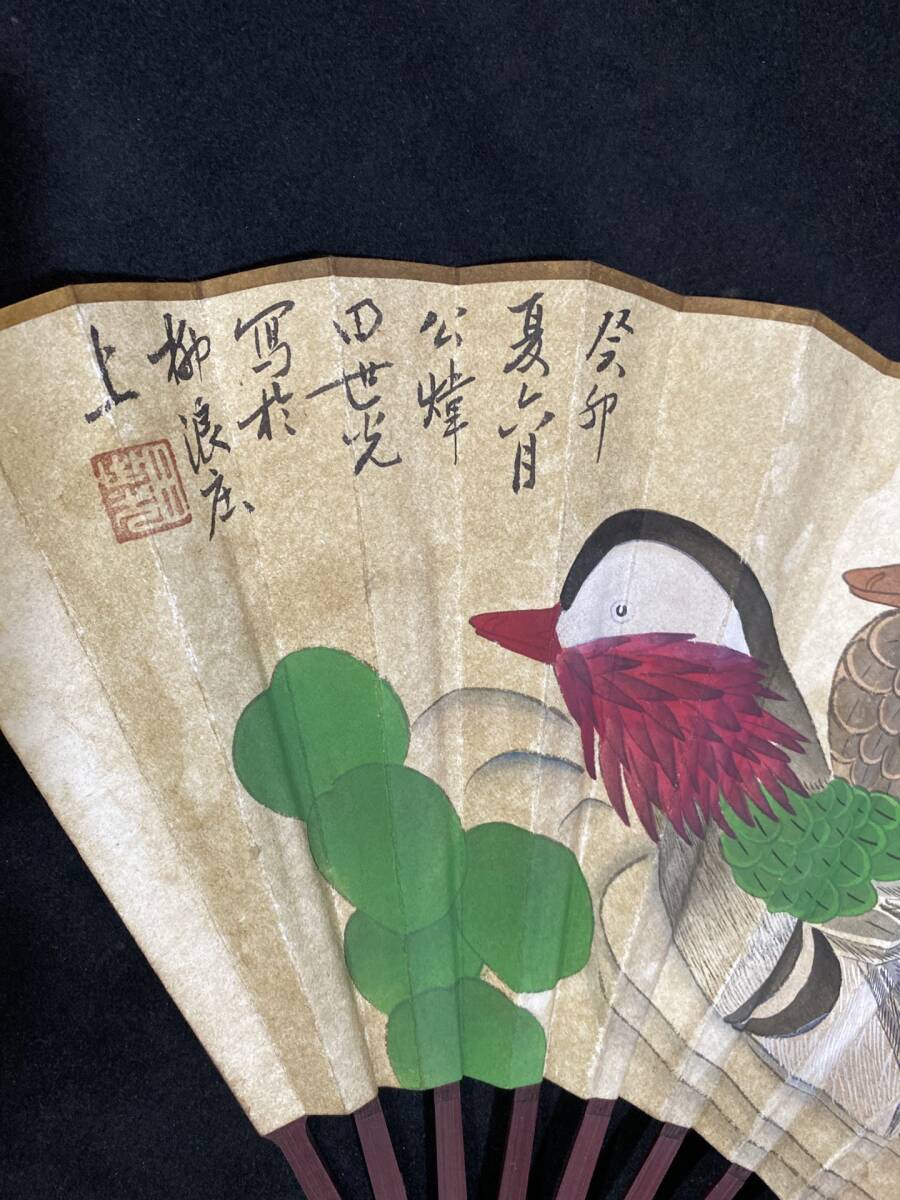 癸卯
夏六月
公煒
田世光
寫於
柳浪庄
上